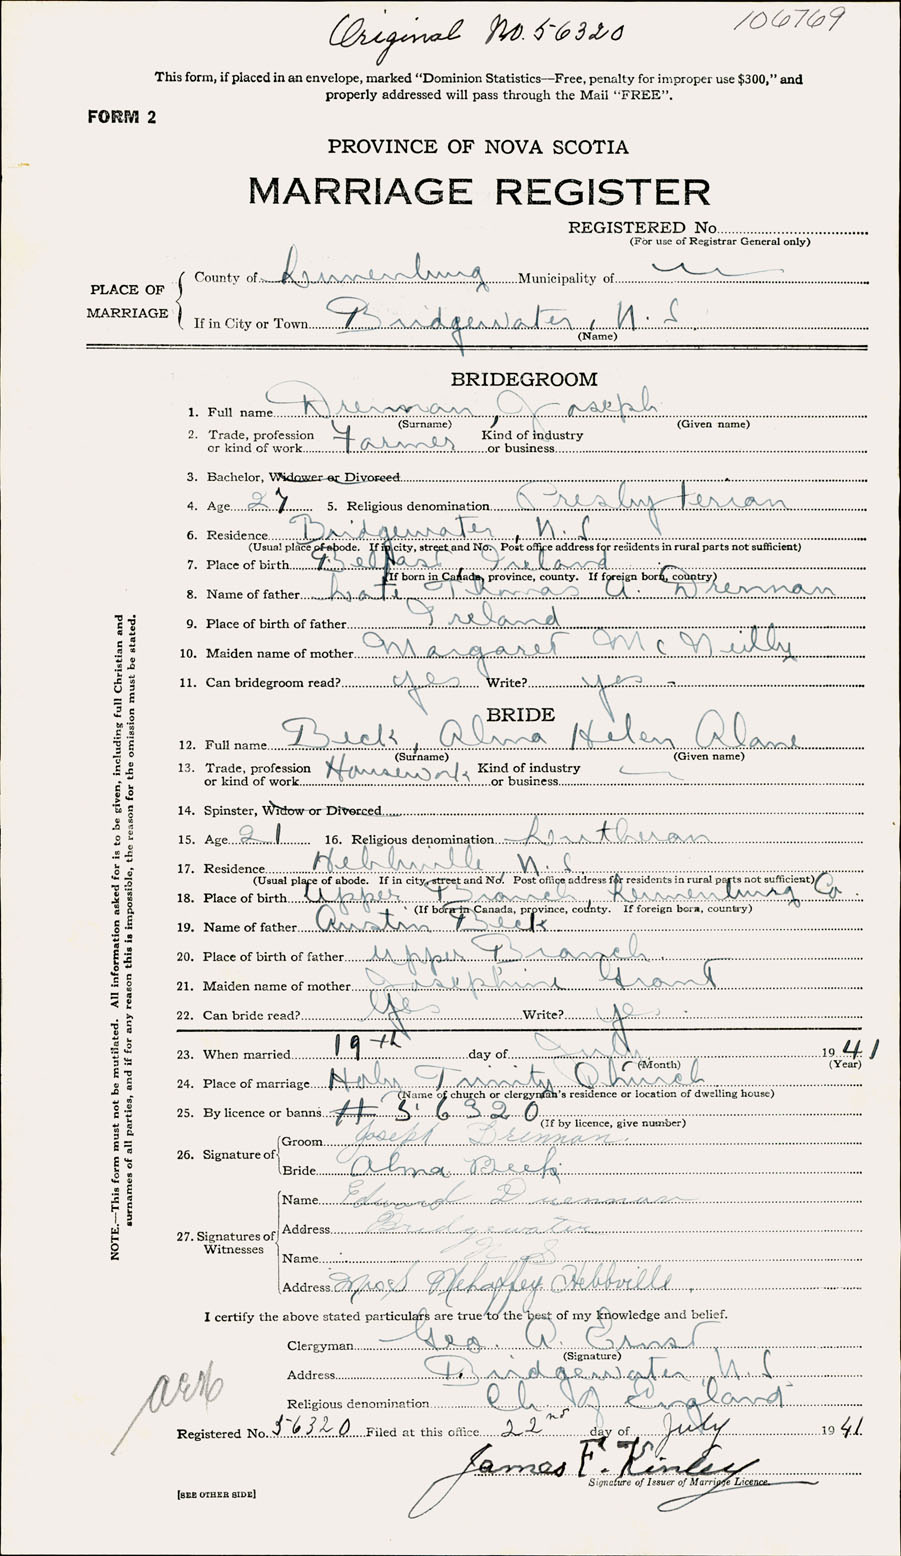 Original No. 56320
106769
This form, if placed in an envelope, marked "Dominion Statistics—Free, penalty for improper use $300," and
properly addressed will pass through the Mail "FREE".
FORM 2
PROVINCE OF NOVA SCOTIA
MARRIAGE REGISTER
REGISTERED No.
(For use of Registrar General only)
PLACE OF MARRIAGE
County of Lunenburg Municipality of
If in City or Town Bridgewater, N.S
(Name)
BRIDEGROOM
1. Full name Drennan, Joseph
(Surname) (Given name)
2. Trade, profession or kind of work Farmer Kind of industry or business
3. Bachelor, Widower or Divorced
4. Age 27 5. Religious denomination Presbyterian
6. Residence Bridgewater, N.S
(Usual place of abode. If in city, street and No. Post office address for residents in rural parts not sufficient)
7. Place of birth Belfast Ireland
(If born in Canada, province, county. If foreign born, country)
8. Name of father Late Thomas A. Drennan
9. Place of birth of father Ireland
10. Maiden name of mother Margaret McNeilly
11. Can bridegroom read? yes Write? yes
BRIDE
12. Full name Beck, Alma Helen Alane
(Surname) (Given name)
13. Trade, profession or kind of work Housework Kind of industry or business
14. Spinster, Widow or Divorced
15. Age 21 16. Religious denomination Lutheran
17. Residence Hebbville N.S
(Usual place of abode. If in city, street and No. Post office address for residents in rural parts not sufficient)
18. Place of birth Upper Branch, Lunenburg Co.
(If born in Canada, province, county. If foreign born, country)
19. Name of father Austin Beck
20. Place of birth of father Upper Branch
21. Maiden name of mother Josephine Grant
22. Can bride read? Yes Write? ye
23. When married 19th day of July 1941
(Month) (Year)
24. Place of marriage Holy Trinity Church
(Name of church or clergyman's residence or location of dwelling house)
25. By licence or banns # 56320
(If by licence, give number)
26. Signature of
Groom Joseph Drennan.
Bride Alma Beck
27. Signatures of Witnesses
Name Edward Drennan
Address Bridgewater
Name N S
Address Mrs S Mehaffey Hebbville
I certify the above stated particulars are true to the best of my knowledge and belief.
Clergyman Geo. A. Ernst
(Signature)
Address Bridgewater, N.S
Religious denomination Ch of England
Registered No. 56320 Filed at this office 22nd day of July 1941
James F. Kinley
Signature of Issuer of Marriage Licence.
[SEE OTHER SIDE]
NOTE.—This form must not be mutilated. All information asked for is to be given, including full Christian and
surnames of all parties, and if for any reason this is impossible, the reason for the omission must be stated.